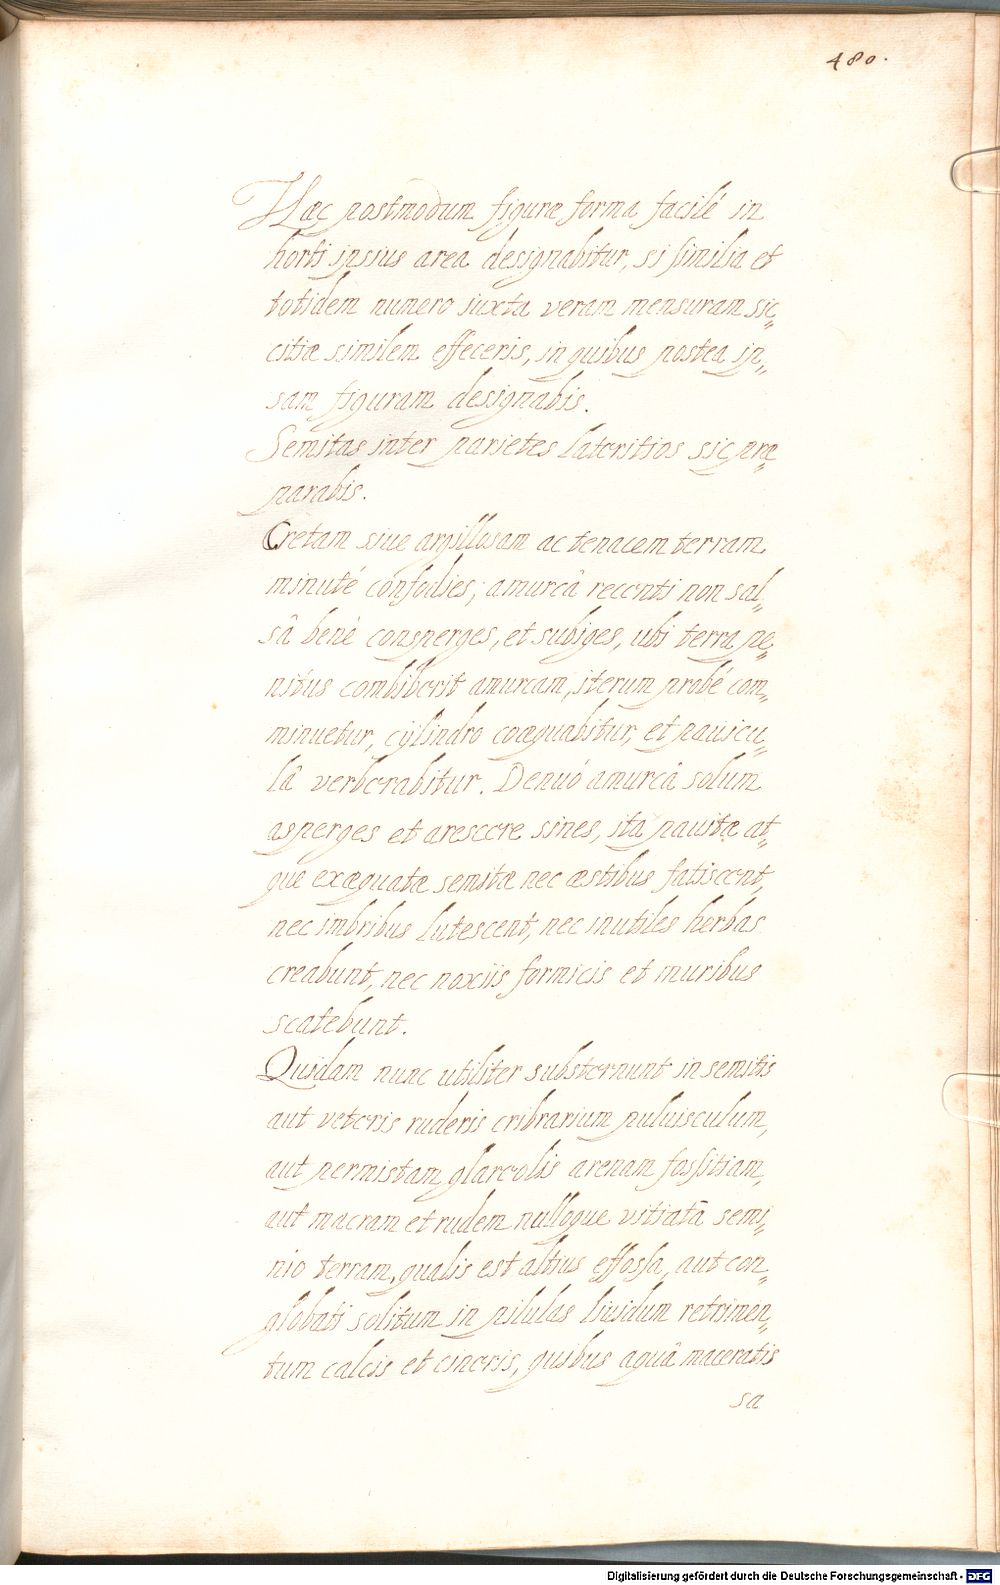 480.
Hæc postmodum figuræ forma facilé in
horti ipsius area designabitur, si similia et
totidem numero iuxta veram mensuram sic„
citiæ similem effeceris, in quibus postea ip„
sam figuram designabis.
Semitas inter parietes lateritios sic præ„
parabis.
Cretam siue argillosam ac tenacem terram
minuté confodies; amurcâ recenti non sal„
sâ benè consperges, et subiges, ubi terra pe„
nitus combiberit amurcam, iterum probé com„
minuetur, cÿlindro coæquabitur, et pauicu„
lâ verberabitur. Denuó amurcâ solum
asperges et arescere sines, ita pauitæ at„
que exæquatæ semitæ nec æstibus fatiscent,
nec imbribus lutescent, nec inutiles herbas
creabunt, nec noxiis formicis et muribus
scatebunt.
Quidam nunc utiliter substernunt in semitis
aut veteris ruderis cribrarium puluisculum,
aut permistam glareolis arenam fossitiam,
aut macram et rudem nulloque vitiatā semi„
nio terram, qualis est altius effossa, aut con„
globati solitum in pilulas liuidum retrimen„
tum calcis et cineris, quibus aquâ maceratis
sa
Digitalisierung gefördert durch die Deutsche Forschungsgemeinschaft - DFG